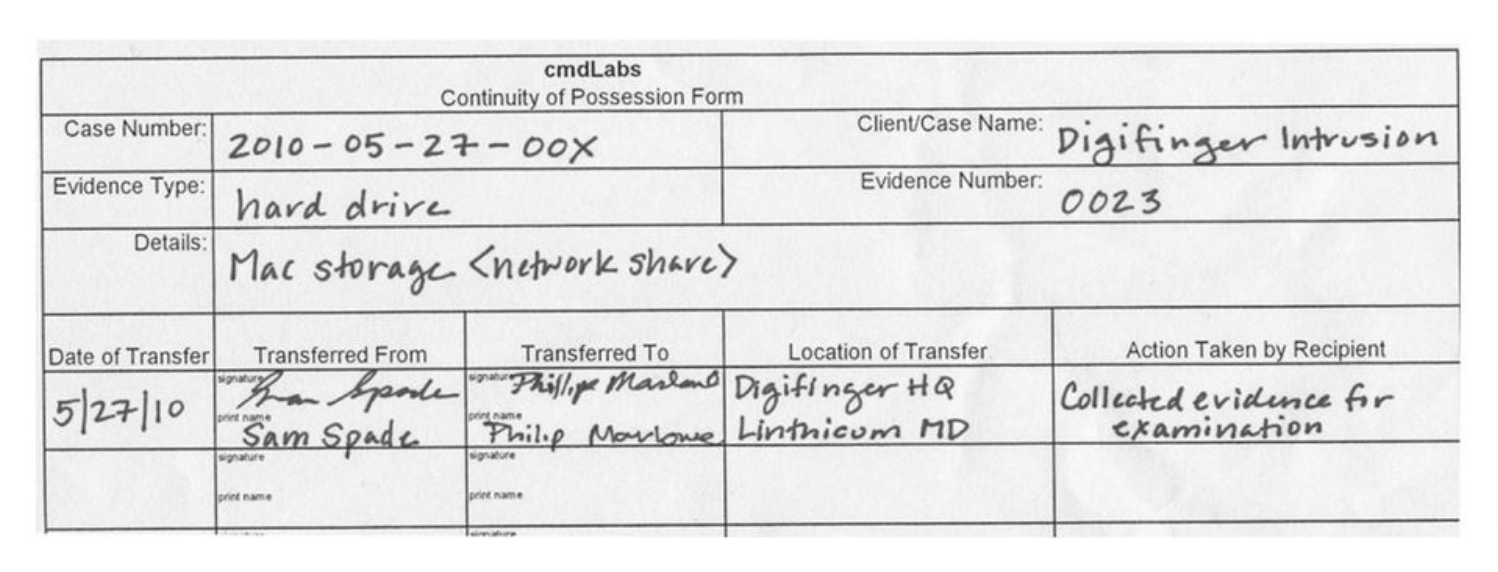 cmdLabs
Continuity of Possession Form
Case Number: 2010-05-27-00X
Client/Case Name: Digifinger Intrusion
Evidence Type: hard drive
Evidence Number: 0023
Details: Mac storage <network share>
Date of Transfer
Transferred From
Transferred To
Location of Transfer
Action Taken by Recipient
5/27/10
signature Sam Spade
print name
Sam Spade
signature Phillip
print name
Philip Marlowe
Digifinger HQ
Linthicum MD
Collected evidence for
examination
signature
print name
signature
print name
signature
signature